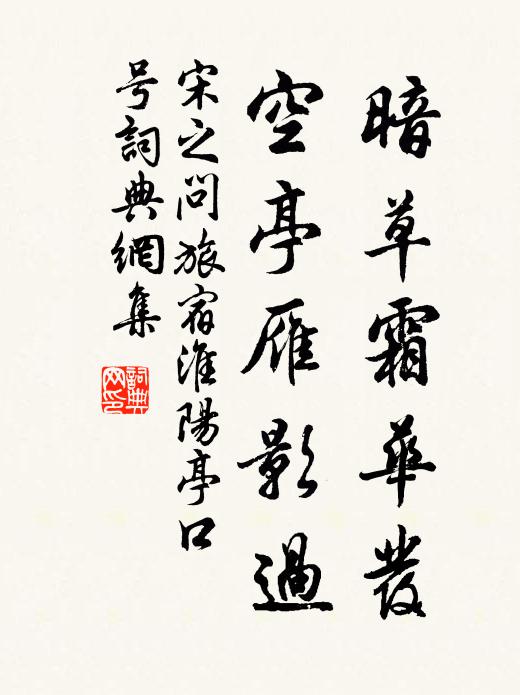 暗草霜華發
空亭雁影過
宋之問旅宿淮陽亭口
号詞典網集
詞典
网印